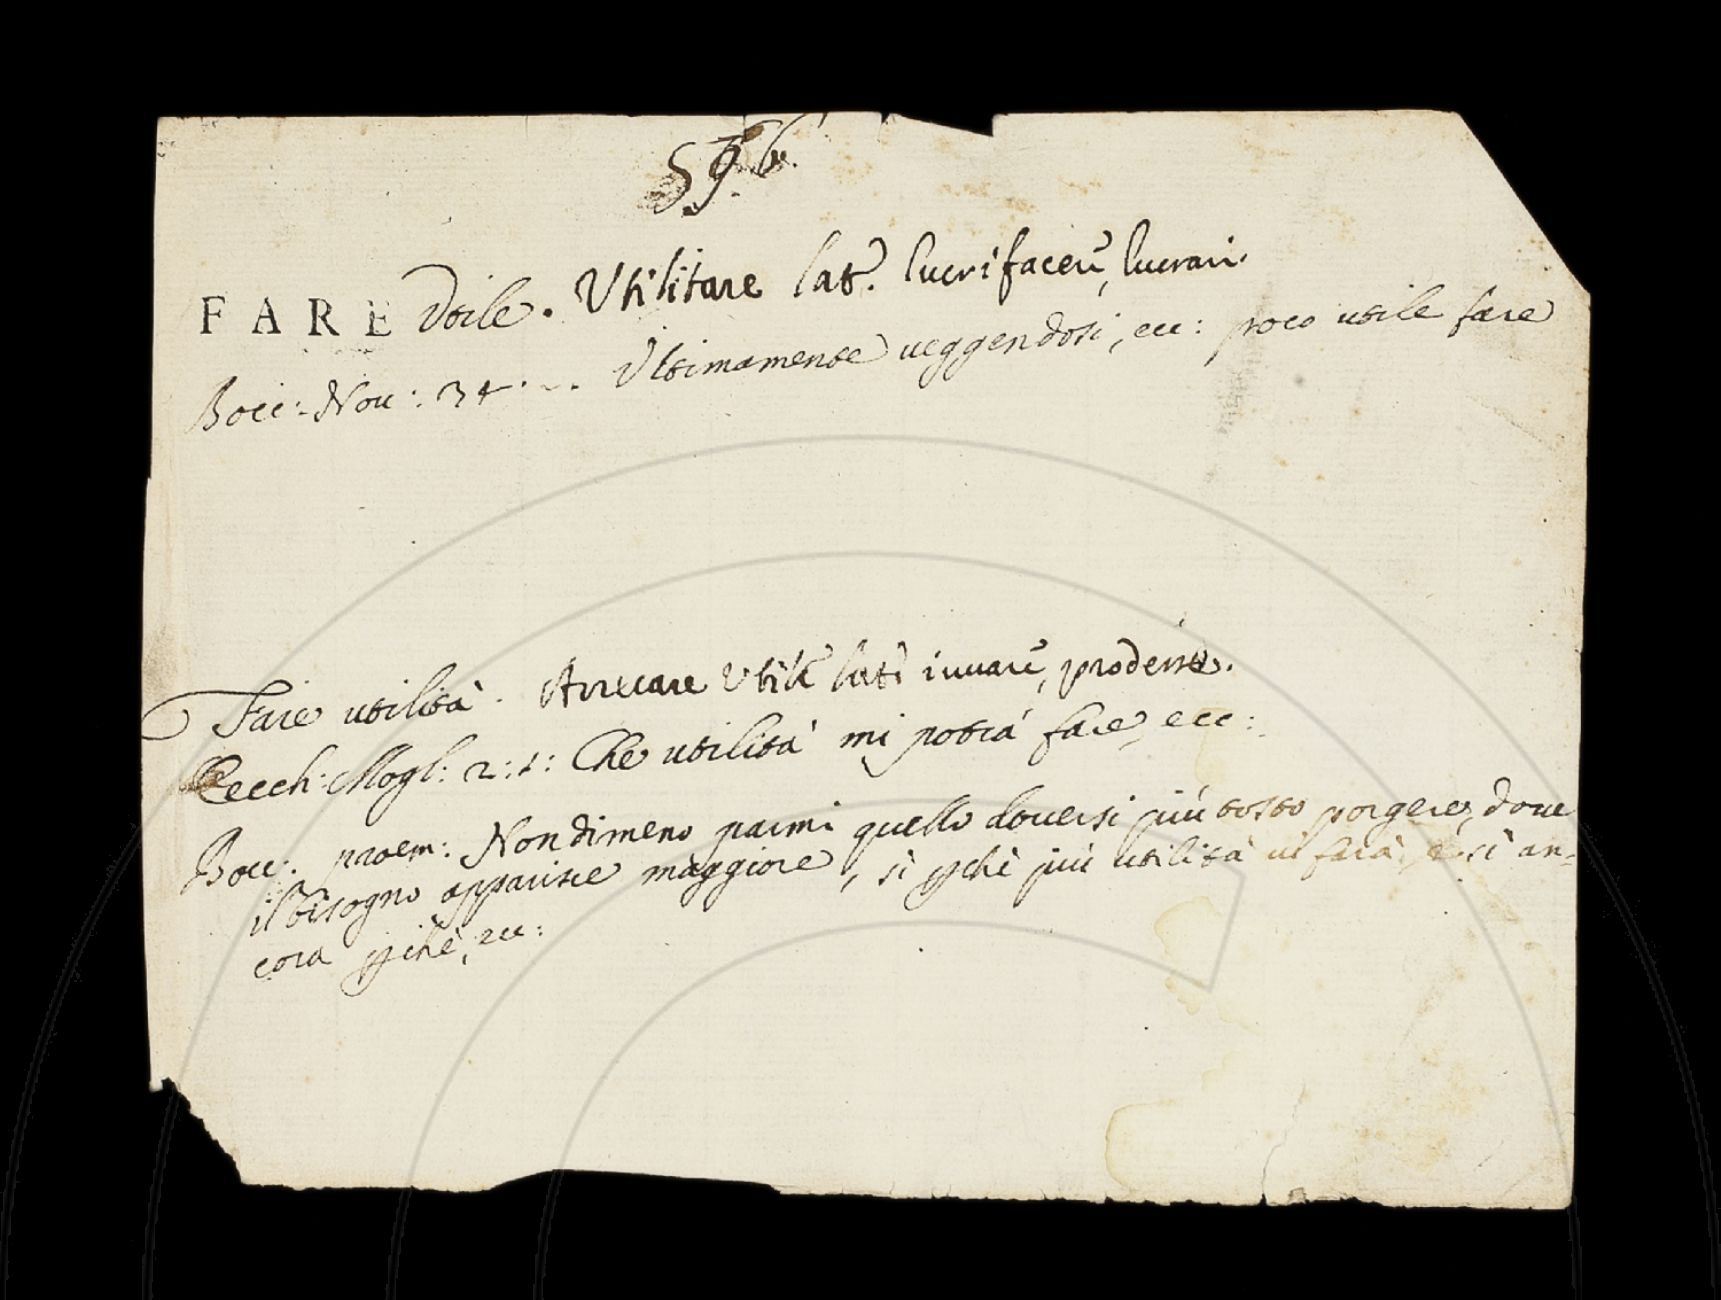 FARE Utile. Utilitare lat. lucrifacere, lucrari.
Bocc: Nov: 34. Ultimamente veggendosi, ecc: poco utile fare
Fare utilità. Arrecare Utile lat. iuvare, prodesse.
Cecch: Mogl: 2: 1: Che utilità mi potrà fare, ecc:
Bocc: proem: Nondimeno parmi quello doversi più tosto porgere, dove
il bisogno apparisce maggiore, sì pchè più utilità vi farà, e sì an=
cora pchè, ecc: